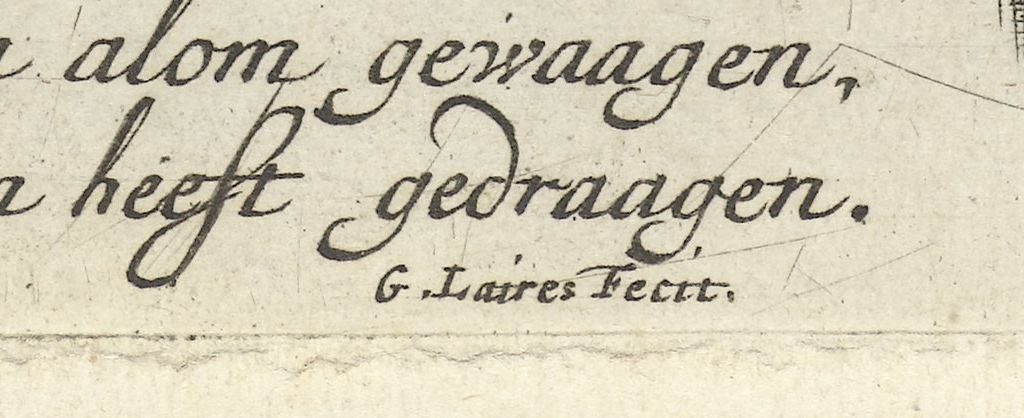 alom gewaagen,
heeft gedraagen.
G. Laires Fecit.